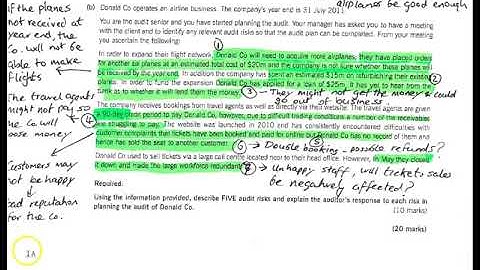 if the planes
not received at
year end, the
Co. will not be
able to make
flights
The travel agents
might not pay so
the Co will
loose money
Customers may
not be happy
bad reputation
for the Co.
airplanes be good enough
(b) Donald Co operates an airline business. The company's year end is 31 July 201
You are the audit senior and you have started planning the audit. Your manager has asked you to have a meeting
with the client and to identify any relevant audit risks so that the audit plan can be completed. From your meeting
you ascertain the following:
1
In order to expand their flight network, Donald Co will need to acquire more airplanes; they have placed orders
for another six planes at an estimated total cost of $20m and the company is not sure whether these planes will
be received by the year end. In addition the company has spent an estimated $15m on refurbishing their existing
2
planes. In order to fund the expansion Donald Co has applied for a loan of $25m. It has yet to hear from the
bank as to whether it will lend them the money.
3 - They might not get the money & could
go out of business
The company receives bookings from travel agents as well as directly via their website. The travel agents are given
4
a 90-day credit period to pay Donald Co, however, due to difficult trading conditions a number of the receivables
are struggling to pay. The website was launched in 2010 and has consistently encountered difficulties with
customer complaints that tickets have been booked and paid for online but Donald Co has no record of them and
hence has sold the seat to another customer.
5
6 → Double booking - possible refunds?
Donald Co used to sell tickets via a large call centre located near to their head office. However, in May they closed
it down and made the large workforce redundant.
8 → Unhappy staff, will tickets sales
be negatively affected?
Required:
Using the information provided, describe FIVE audit risks and explain the auditor's response to each risk in
planning the audit of Donald Co.
(10 marks)
(20 marks)